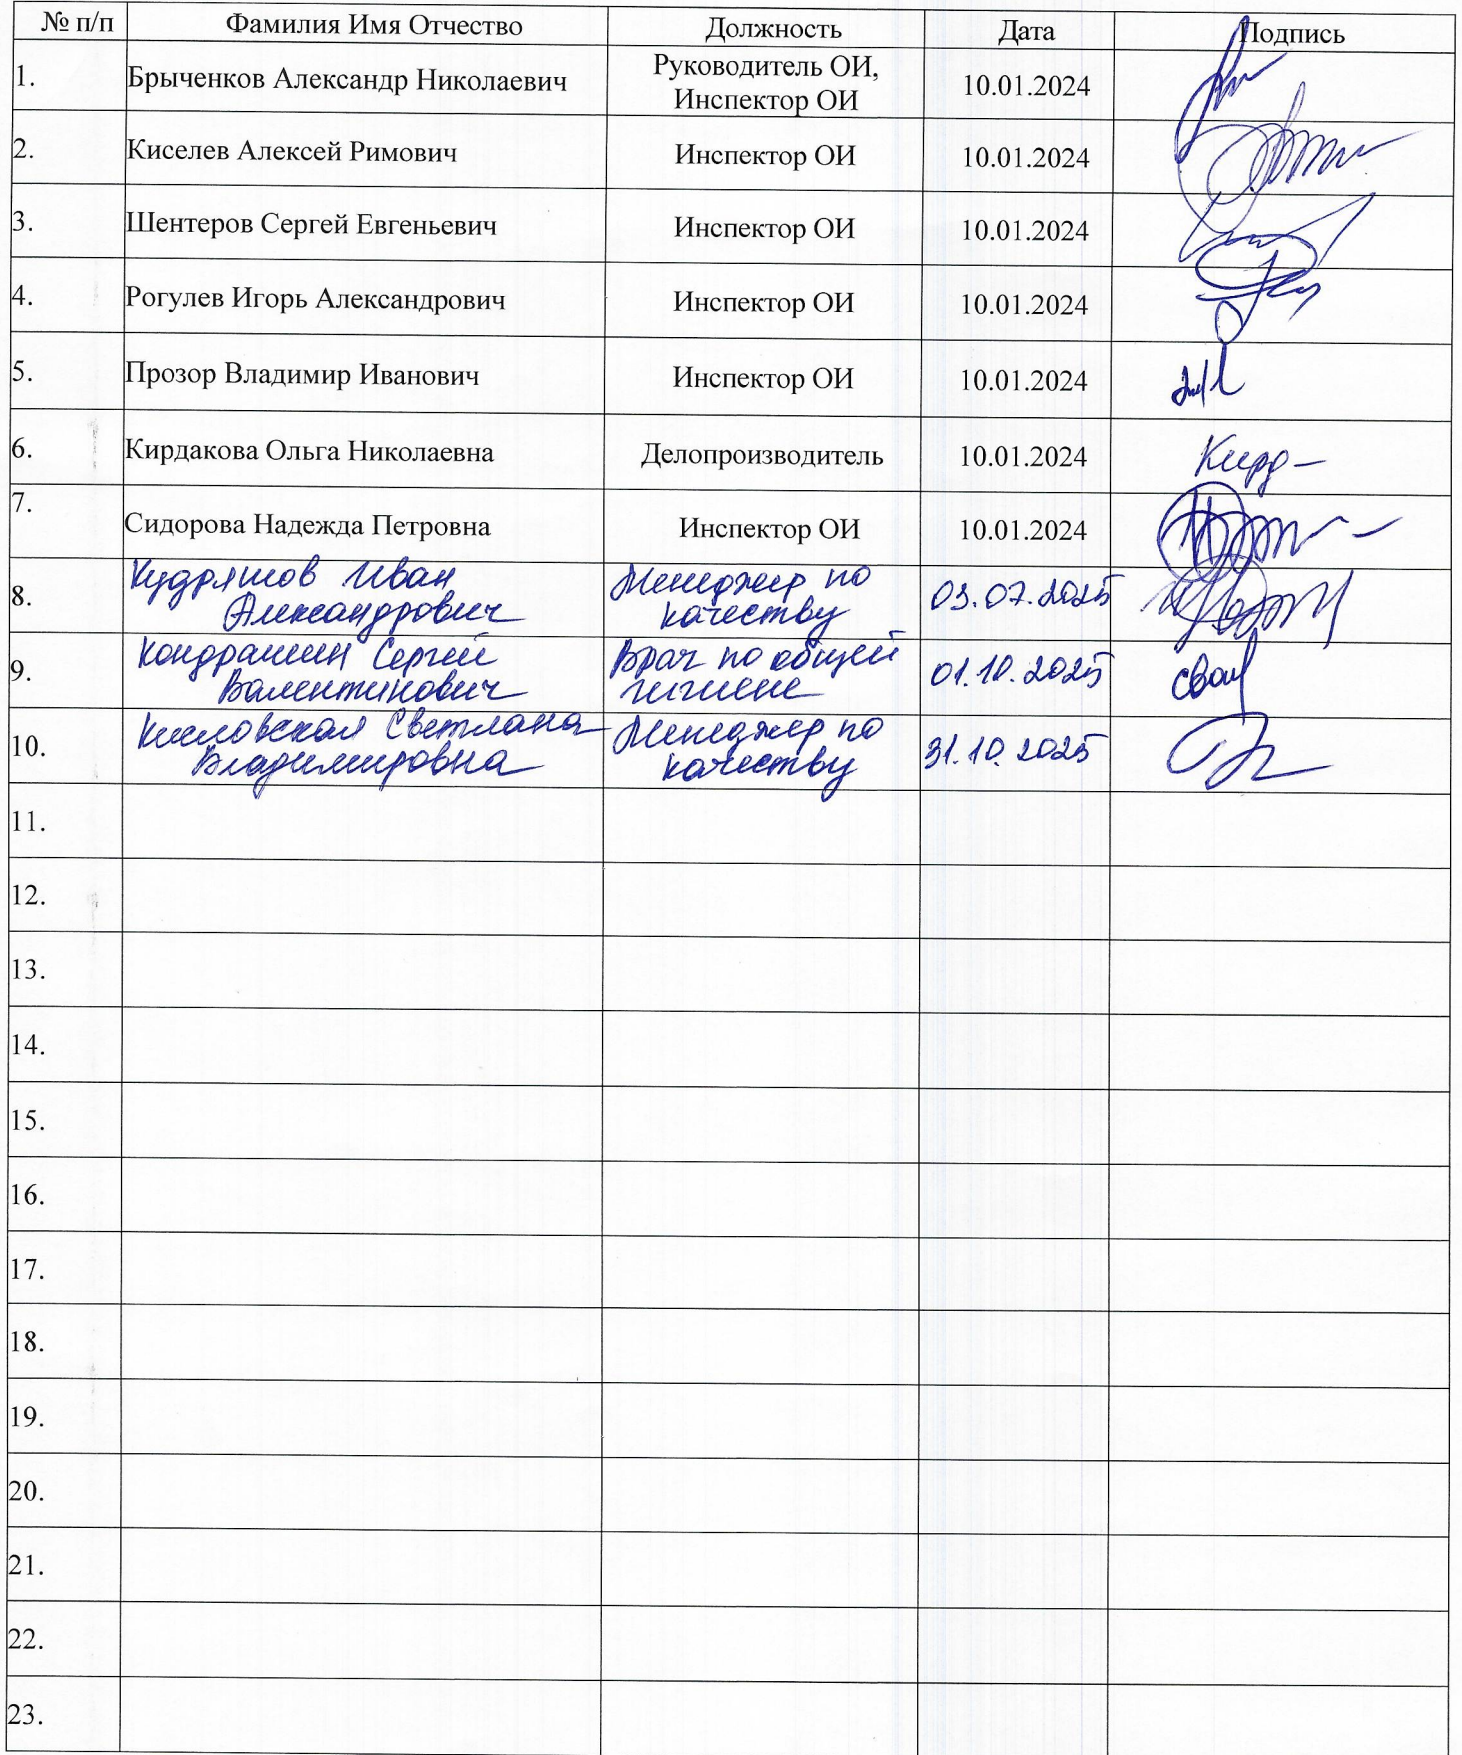 № п/п Фамилия Имя Отчество Должность Дата Подпись
1. Брыченков Александр Николаевич Руководитель ОИ, Инспектор ОИ 10.01.2024
2. Киселев Алексей Римович Инспектор ОИ 10.01.2024
3. Шентеров Сергей Евгеньевич Инспектор ОИ 10.01.2024
4. Рогулев Игорь Александрович Инспектор ОИ 10.01.2024
5. Прозор Владимир Иванович Инспектор ОИ 10.01.2024
6. Кирдакова Ольга Николаевна Делопроизводитель 10.01.2024 Кирд
7. Сидорова Надежда Петровна Инспектор ОИ 10.01.2024
8. Кудряшов Иван Александрович Менеджер по качеству 03.07.2025
9. Кондрашин Сергей Валентинович Врач по общей гигиене 01.10.2025
10. Кисловская Светлана Владимировна Менеджер по качеству 31.10.2025
11.
12.
13.
14.
15.
16.
17.
18.
19.
20.
21.
22.
23.